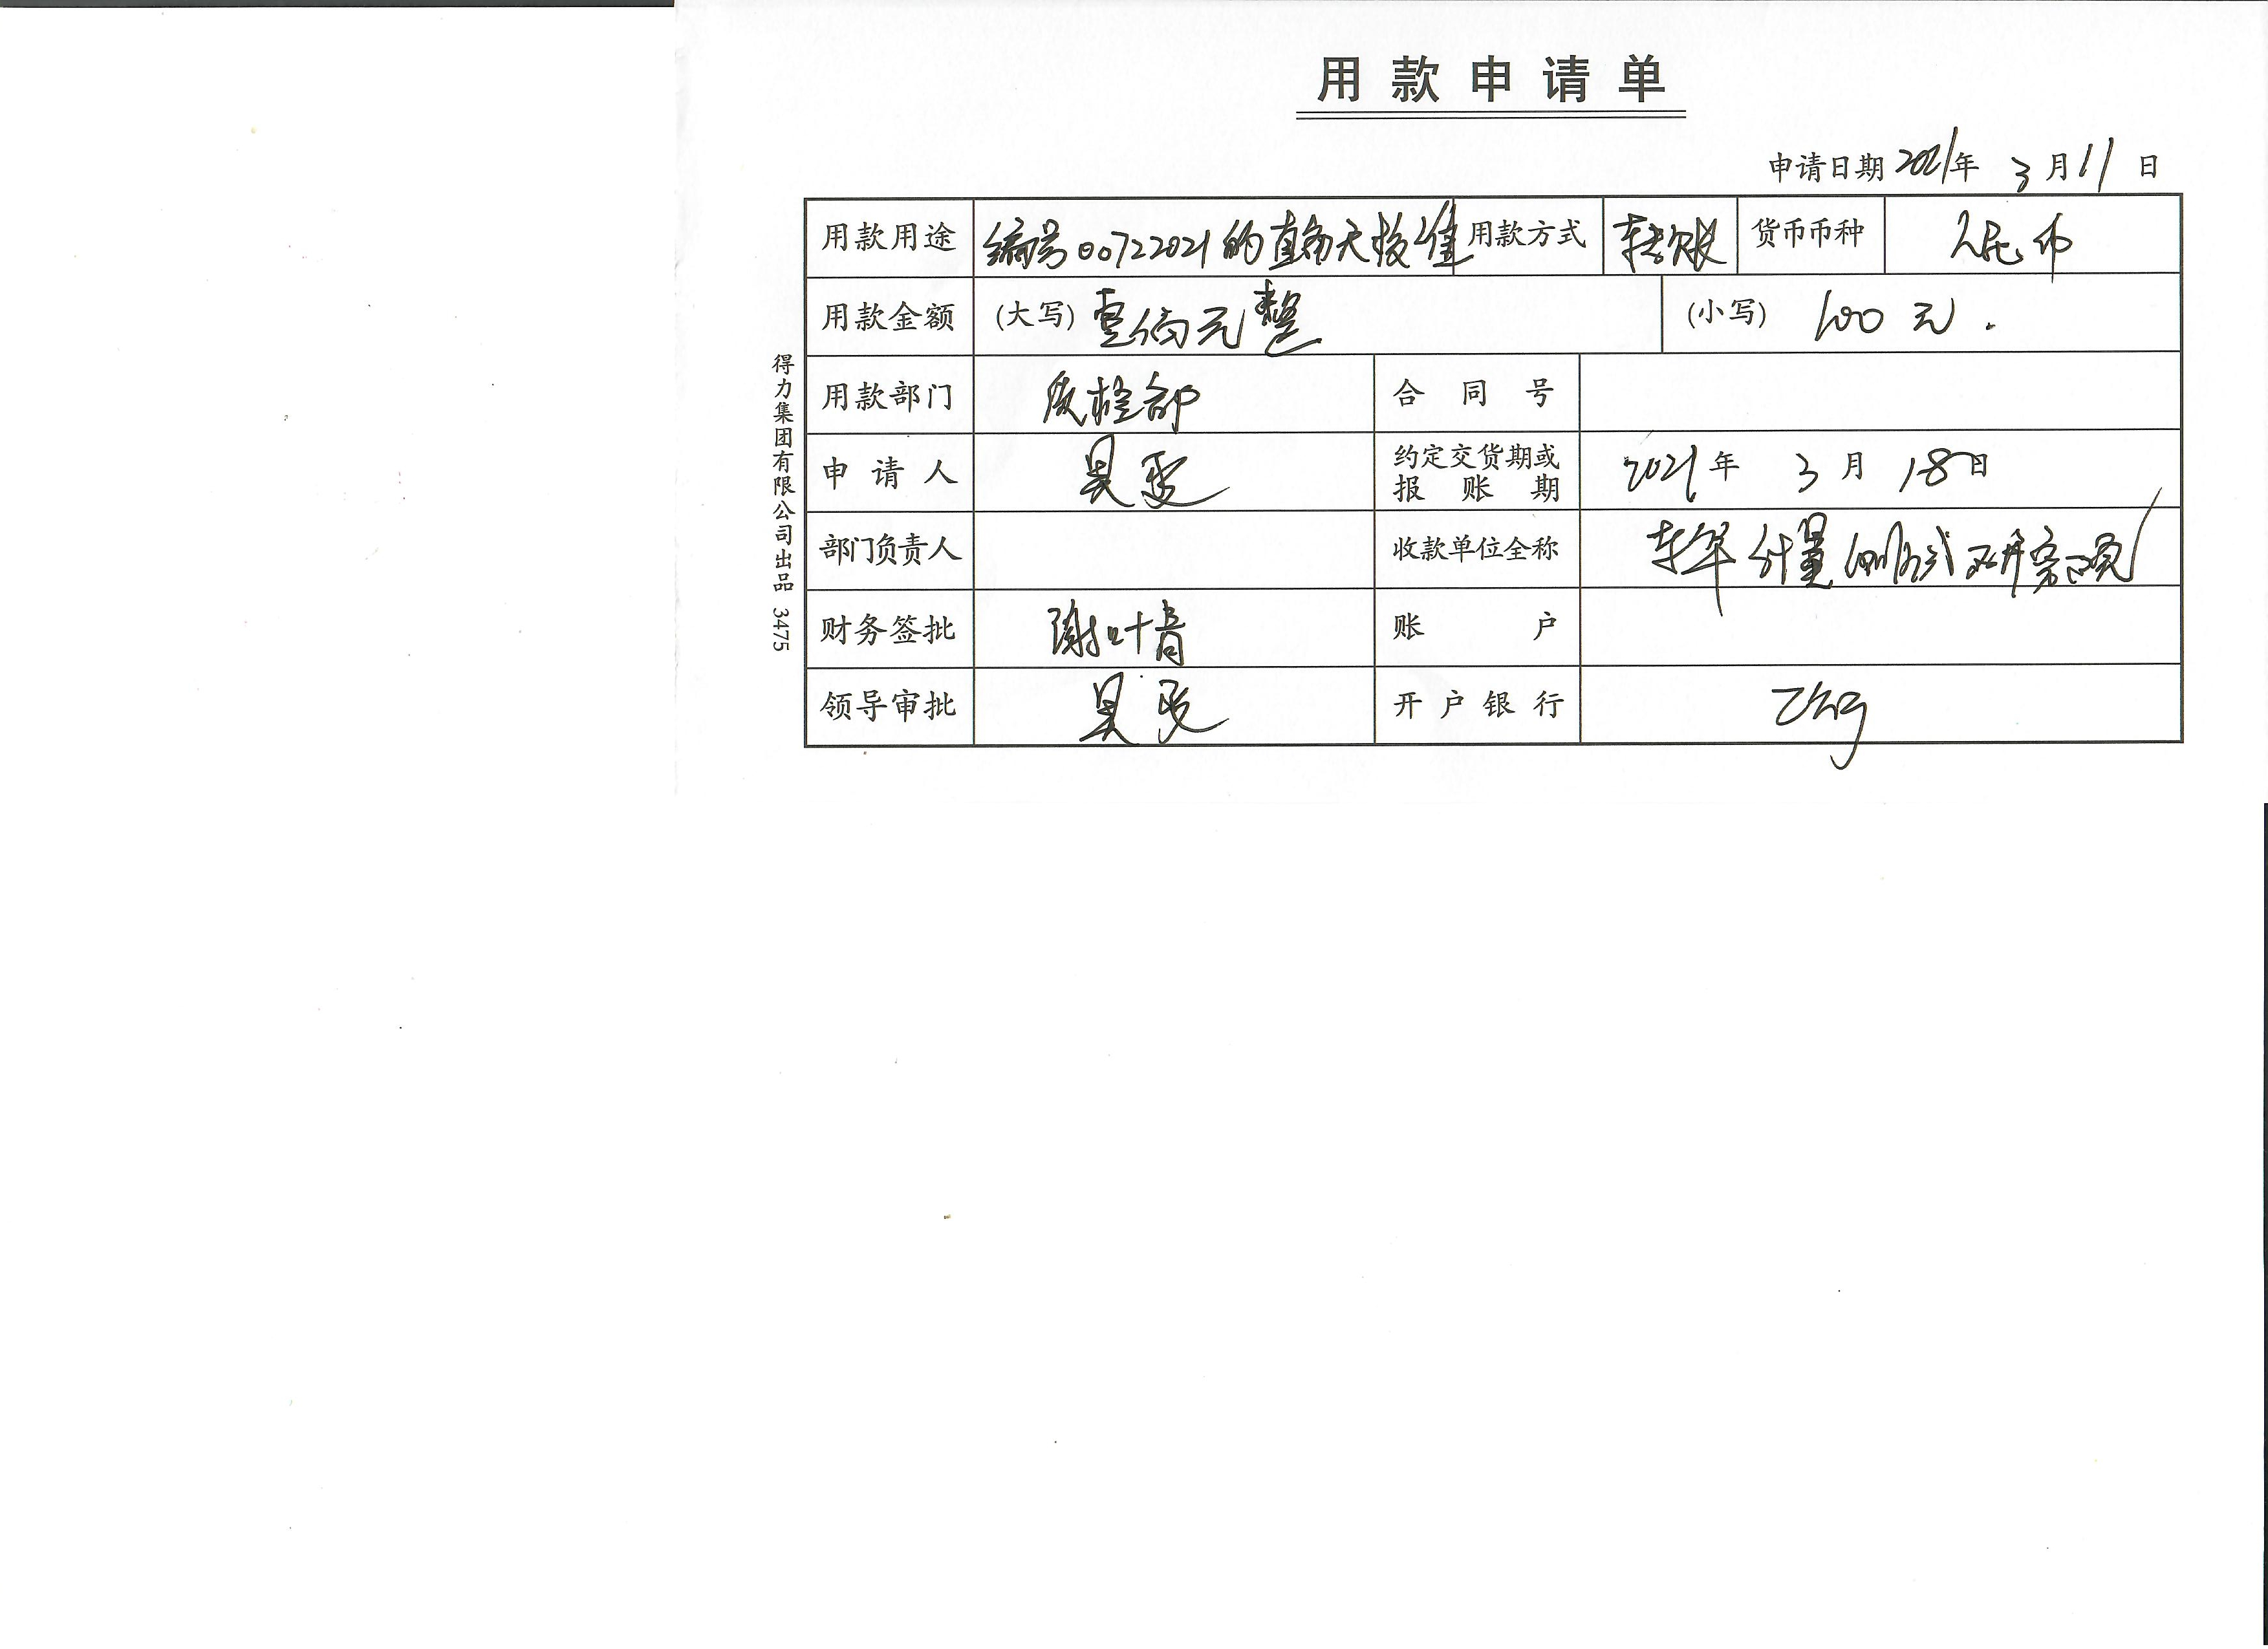 用款申请单
申请日期 2021年 3月11日
用款用途 编号00722021的 校准 用款方式 转账 货币币种 人民币
用款金额 (大写) 壹佰元整 (小写) 100元.
用款部门 质检部 合同号
申请人 吴 约定交货期或报账期 2021年 3月 18日
部门负责人 收款单位全称 计量测试研究院
财务签批 谢叶青 账户
领导审批 吴 开户银行
得力集团有限公司出品 3475